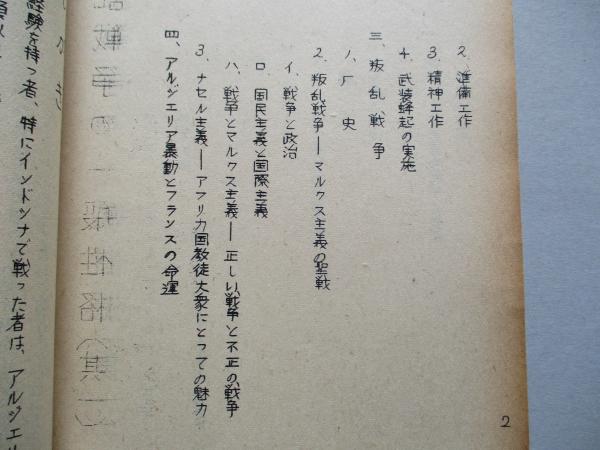 2. 準備工作
3. 精神工作
4. 武装蜂起の実施
三、叛乱戦争
1. 厂史
2. 叛乱戦争——マルクス主義の聖戦
イ. 戦争と政治
ロ. 国民主義と国際主義
ハ. 戦争とマルクス主義——正しい戦争と不正の戦争
3. ナセル主義——アフリカ回教徒大衆にとっての魅力
四、アルジェリア暴動とフランスの命運
2
経験を持つ者、特にインドシナで戦った者は、アルジェリ